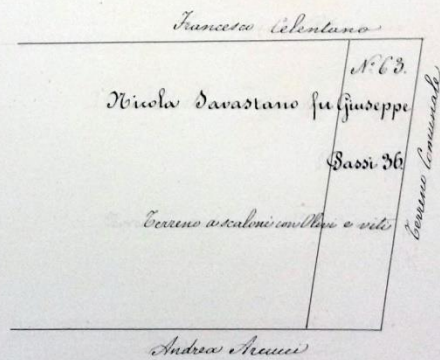 Francesco Celentano
N.º 63.
Nicola Savastano fu Giuseppe
Bassi 36.
Terreno a scaloni con Olivi e viti
Terreno Comunale
Andrea Arcucci